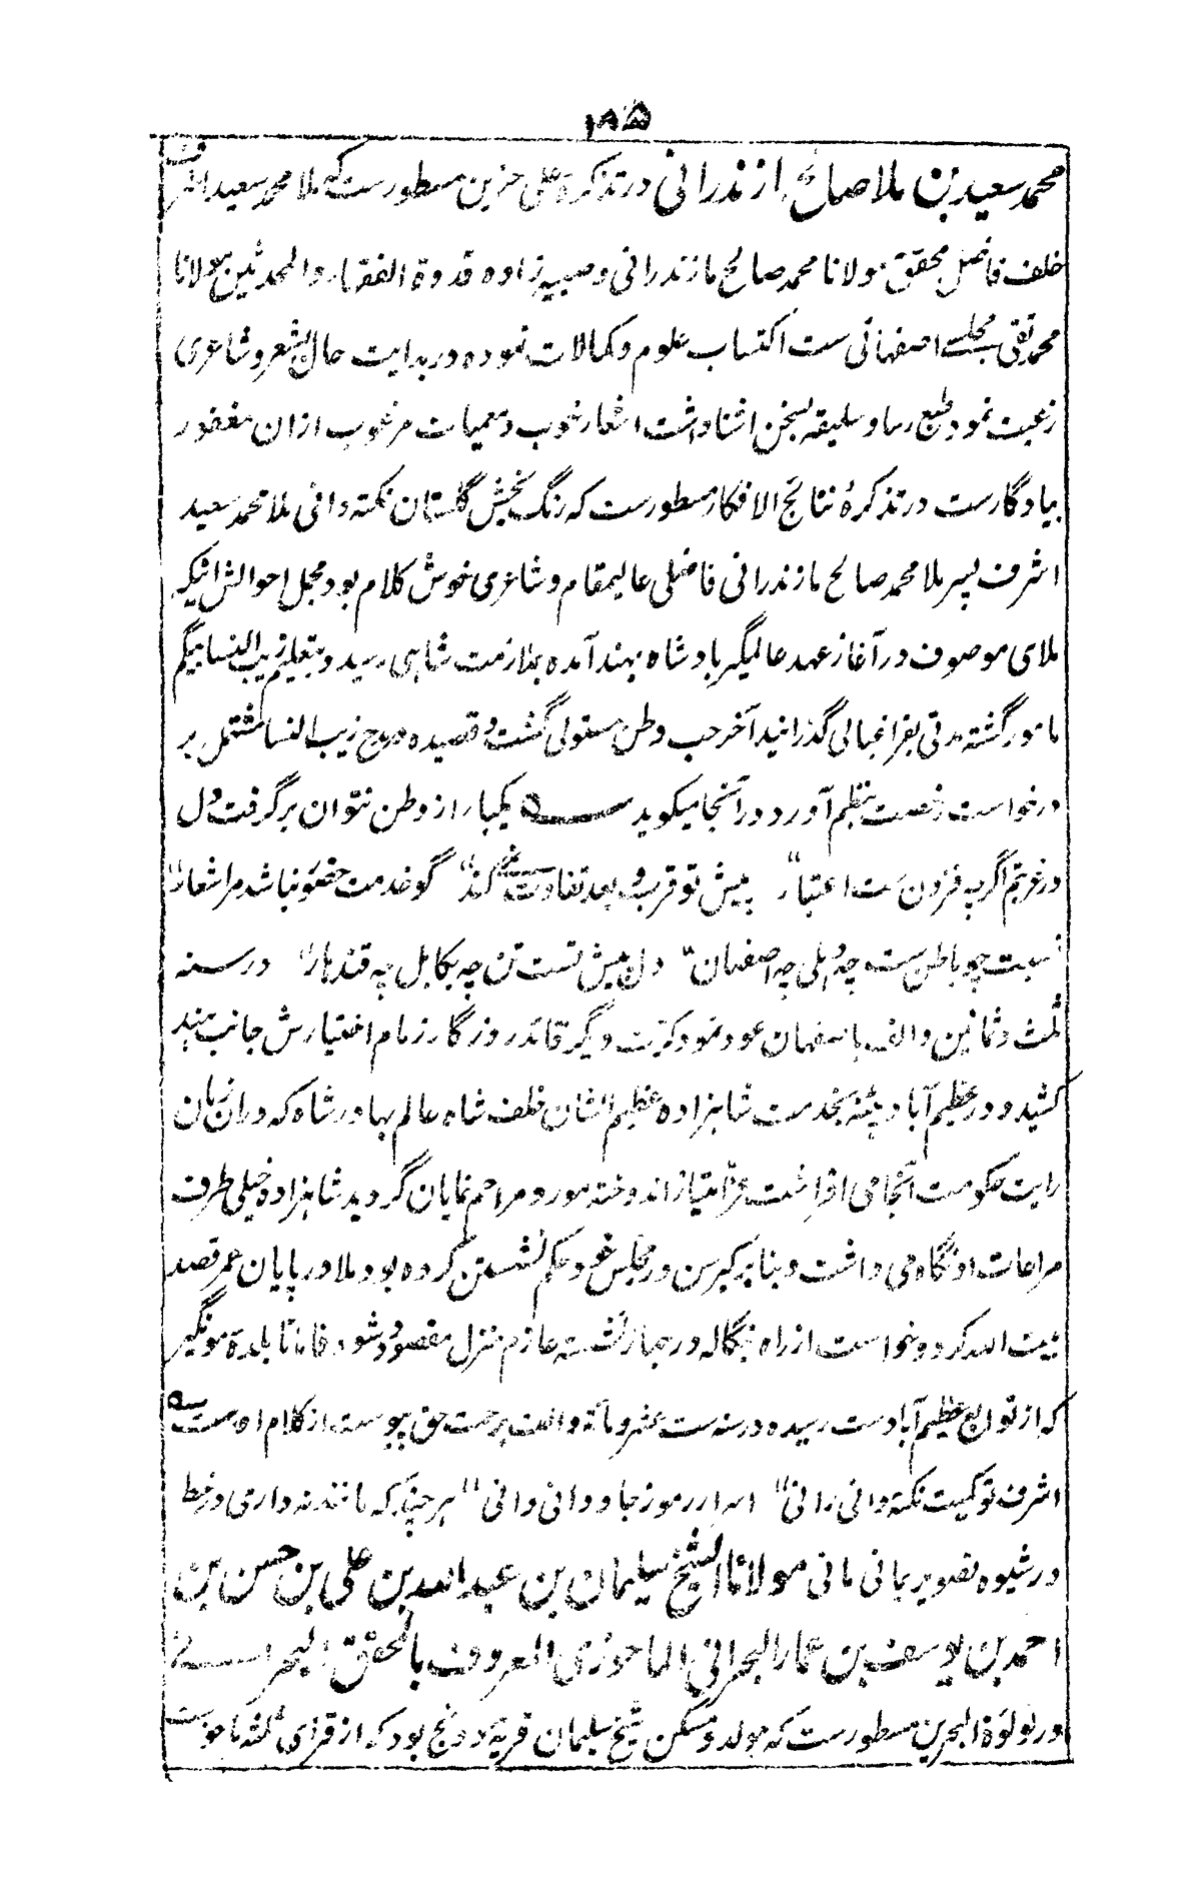 ۱۸۵
محمد سعید بن ملا صالح مازندرانی در تذکرهٔ علی حزین مسطورست که ملا محمد سعید اشرف
خلف فاضل محقق مولانا محمد صالح مازندرانی و صبیه زاده قدوة الفقهاء و المحدثین مولانا
محمد تقی مجلسے اصفهانی ست اکتساب علوم و کمالات نموده در بدایت حال بشعر و شاعری
رغبت نمود طبع رسا و سلیقه بسخن اشنا داشت اشعار خوب و معمیات مرغوب ازان مغفور
بیادگارست در تذکرهٔ نتائج الافکار مسطورست که رنگ بخش گلستان نکته دانی ملا محمد سعید
اشرف پسر ملا محمد صالح مازندرانی فاضلی عالیمقام و شاعری خوش کلام بود مجمل احوالش اینکه
ملای موصوف در آغاز عهد عالمگیر بادشاه بهند آمده بملازمت شاہی رسید و بتعلیم زیب النسا بیگم
مامور گشته مدتی بفراغبالی گذرانید آخر حب وطن مستولی گشت و قصیده مدح زیب النسا مشتمل بر
درخواست رخصت بنظم آورد و در آنجا میگوید ـه یکبار از وطن نتوان برگرفت دل
در غربتم اگرچه فزون ست اعتبار" پیش تو قرب و بعد تفاوت نمی کند" گو خدمت حضور نباشد مرا شعار"
نسبت چو باطن ست چه دہلی چه اصفهان" دل پیش تست تن چه بکابل چه قندهار" در سنه
ثلث و ثمانین و الف باصفهان عود نمود کرت دیگر قائد روزگار زمام اختیارش جانب ہند
کشید و در عظیم آباد پٹنه بخدمت شاہزاده عظیم الشان خلف شاه عالم بهادر شاه که دران زمان
رایت حکومت آنجا می افراشت عز امتیاز اندوخته مورد مراحم نمایان گردید شاہزاده خیلی طرف
مراعات او نگاه می داشت و بنا بر کبر سن در مجلس خود حکم نشستن کرده بود ملا در پایان عمر قصد
بیت الله کرد و خواست از راه بنگاله در جهاز نشسته عازم منزل مقصود شود فاما تا بلدهٔ مونگیر
که از توابع عظیم آباد ست رسیده در سنه ست عشر و مأته و الف برحمت حق پیوست از کلام اوست ـه
اشرف تو کمیت نکته دانی رانی" اسرار رموز جاودانی دانی" ہر چند که مانند نداری در خط
در شیوه تصویر بمانی مانی مولانا الشیخ سلیمان بن عبد الله بن علی بن حسن بن
احمد بن یوسف بن عمار البحرانی الماحوزی المعروف بالمحقق البحرانے
در لولوة البحرین مسطورست که مولد و مسکن شیخ سلیمان قریه دونج بود که از قرای ماحوزست